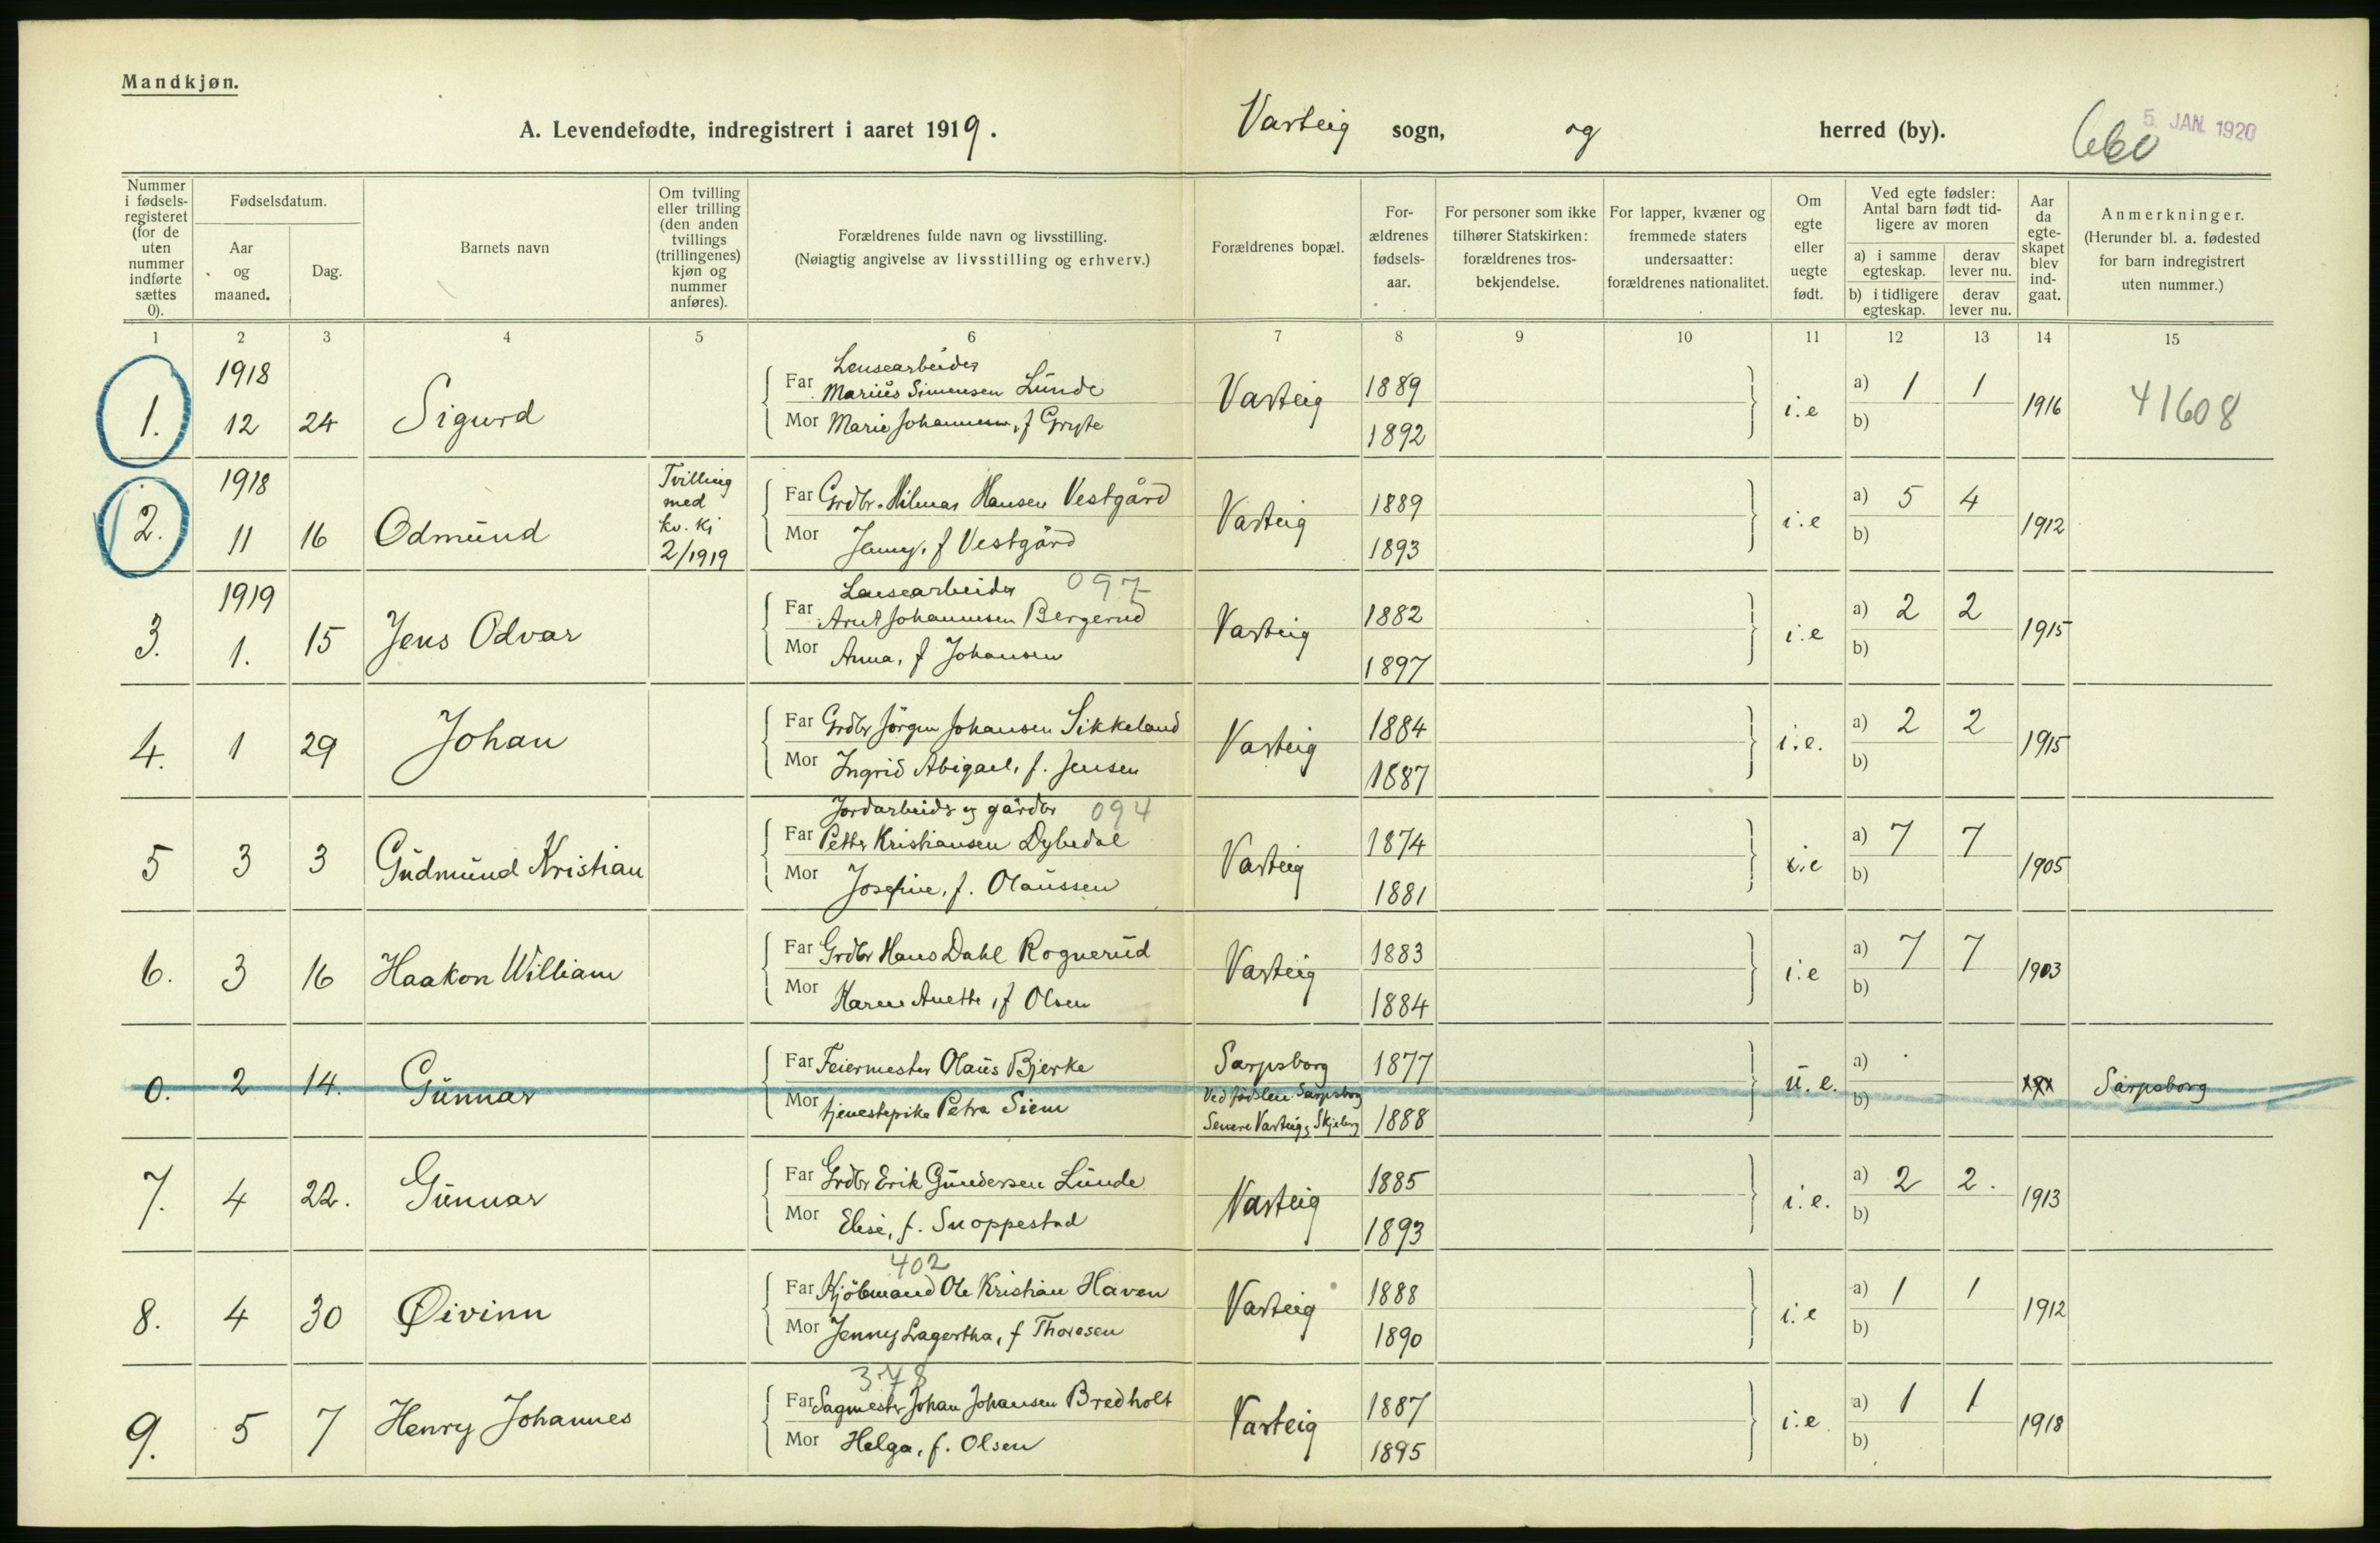 Mandkjøn.
A. Levendefødte, indregistrert i aaret 1919.
Varteig sogn, og herred (by).
660
5. JAN. 1920
Nummer i fødsels-registeret (for de uten nummer indførte sættes 0).
Fødselsdatum.
Aar og maaned.
Dag.
Barnets navn
Om tvilling eller trilling (den anden tvillings (trillingenes) kjøn og nummer anføres).
Forældrenes fulde navn og livsstilling.
(Nøiagtig angivelse av livsstilling og erhverv.)
Forældrenes bopæl.
For-ældrenes fødsels-aar.
For personer som ikke tilhører Statskirken: forældrenes tros-bekjendelse.
For lapper, kvæner og fremmede staters undersaatter: forældrenes nationalitet.
Om egte eller uegte født.
Ved egte fødsler: Antal barn født tid-ligere av moren
a) i samme egteskap. derav lever nu.
b) i tidligere egteskap. derav lever nu.
Aar da egte-skapet blev ind-gaat.
Anmerkninger.
(Herunder bl. a. fødested for barn indregistrert uten nummer.)
1 2 3 4 5 6 7 8 9 10 11 12 13 14 15
1918
Lensearbeider
1. 12 24 Sigurd
Far Marius Simensen Lunde Varteig 1889 i.e a) 1 1 1916 41608
Mor Marie Johannesen, f Gryte 1892 b)
1918
2. 11 16 Odmund Tvilling med kv. kj 2/1919
Far Grdbr. Hilmar Hansen Vestgård Varteig 1889 i.e a) 5 4 1912
Mor Jenny, f Vestgård 1893 b)
1919
Lensearbeider 097
3. 1. 15 Jens Odvar
Far Arnt Johannesen Bergerud Varteig 1882 i.e a) 2 2 1915
Mor Anna, f Johansen 1897 b)
4. 1 29 Johan
Far Grdbr Jörgen Johansen Sikkeland Varteig 1884 i.e. a) 2 2 1915
Mor Ingrid Abigael, f. Jensen 1887 b)
Jordarbeider og gårdbr 094
5 3 3 Gudmund Kristian
Far Petter Kristiansen Dybedal Varteig 1874 i.e a) 7 7 1905
Mor Josefine, f. Olaussen 1881 b)
6. 3 16 Haakon William
Far Grdbr Hans Dahl Rognerud Varteig 1883 i.e a) 7 7 1903
Mor Karen Anette, f Olsen 1884 b)
0. 2 14. Gunnar
Far Feiermester Olaus Bjerke Sarpsborg 1877 u.e. a) xxx Sarpsborg
Mor tjenestepike Petra Siem Ved fødslen Sarpsborg
Senere Varteig, Skjeberg 1888 b)
7. 4 22. Gunnar
Far Grdbr Erik Gundersen Lunde Varteig 1885 i.e. a) 2 2. 1913
Mor Elise, f. Snoppestad 1893 b)
402
8. 4 30 Øivinn
Far Kjöbmand Ole Kristian Haven Varteig 1888 i.e a) 1 1 1912
Mor Jenny Lagertha, f Thoresen 1890 b)
378
9. 5 7 Henry Johannes
Far Sagmester Johan Johansen Bredholt Varteig 1887 i.e. a) 1 1 1918
Mor Helga, f. Olsen 1895 b)